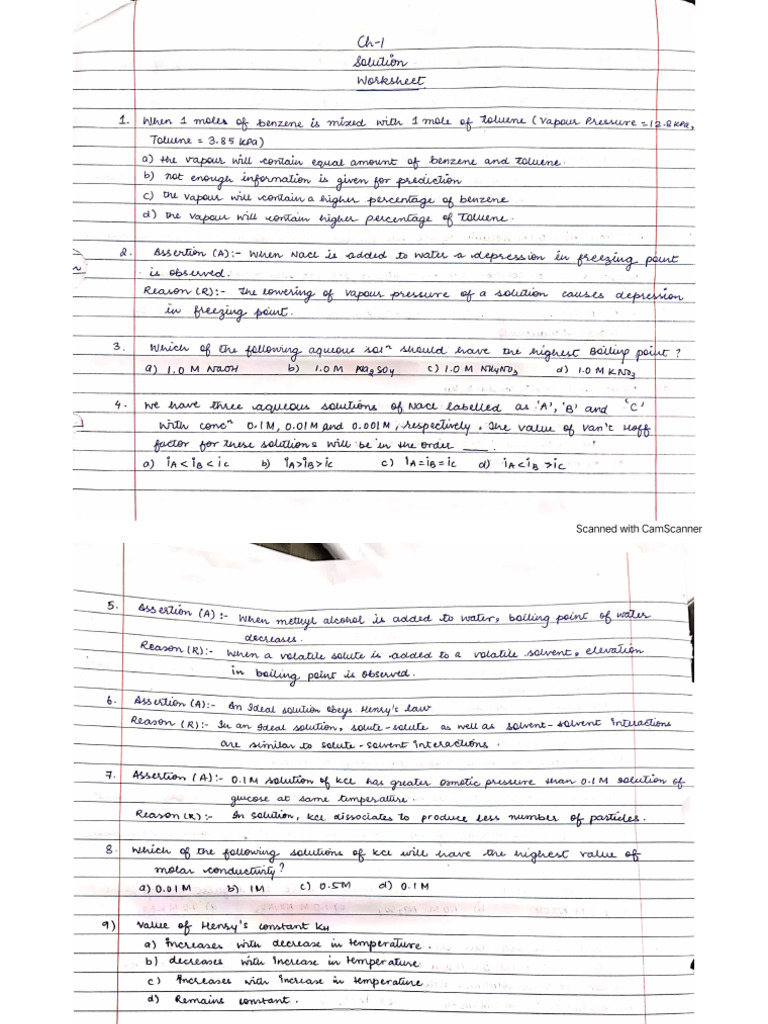 Ch-1
Solution
Worksheet
1. When 1 moles of benzene is mixed with 1 mole of toluene (Vapour Pressure = 12.8 kPa,
Toluene = 3.85 kPa)
a) the vapour will contain equal amount of benzene and toluene.
b) not enough information is given for prediction
c) the vapour will contain a higher percentage of benzene
d) the vapour will contain higher percentage of toluene.
2. Assertion (A):- When NaCl is added to water a depression in freezing point
is observed.
Reason (R):- The lowering of vapour pressure of a solution causes depression
in freezing point.
3. Which of the following aqueous solⁿ should have the highest Boiling point?
a) 1.0 M NaOH b) 1.0 M Na2SO4 c) 1.0 M NH4NO3 d) 1.0 M KNO3
4. We have three aqueous solutions of NaCl labelled as 'A', 'B' and 'C'
with concⁿ 0.1M, 0.01M and 0.001M, respectively. The value of van't Hoff
factor for these solutions will be in the order ___.
a) iA < iB < ic b) iA > iB > ic c) iA = iB = ic d) iA < iB > ic
Scanned with CamScanner
5. Assertion (A):- When methyl alcohol is added to water, boiling point of water
decreases.
Reason (R):- When a volatile solute is added to a volatile solvent, elevation
in boiling point is observed.
6. Assertion (A):- An Ideal solution obeys Henry's law
Reason (R):- In an Ideal solution, solute-solute as well as solvent-solvent interactions
are similar to solute-solvent interactions.
7. Assertion (A):- 0.1M solution of KCl has greater osmotic pressure than 0.1M solution of
glucose at same temperature.
Reason (R):- In solution, KCl dissociates to produce less number of particles.
8. Which of the following solutions of KCl will have the highest value of
molar conductivity?
a) 0.01M b) 1M c) 0.5M d) 0.1M
9) Value of Henry's constant KH
a) Increases with decrease in temperature.
b) decreases with Increase in temperature
c) Increases with Increase in temperature
d) Remains constant.